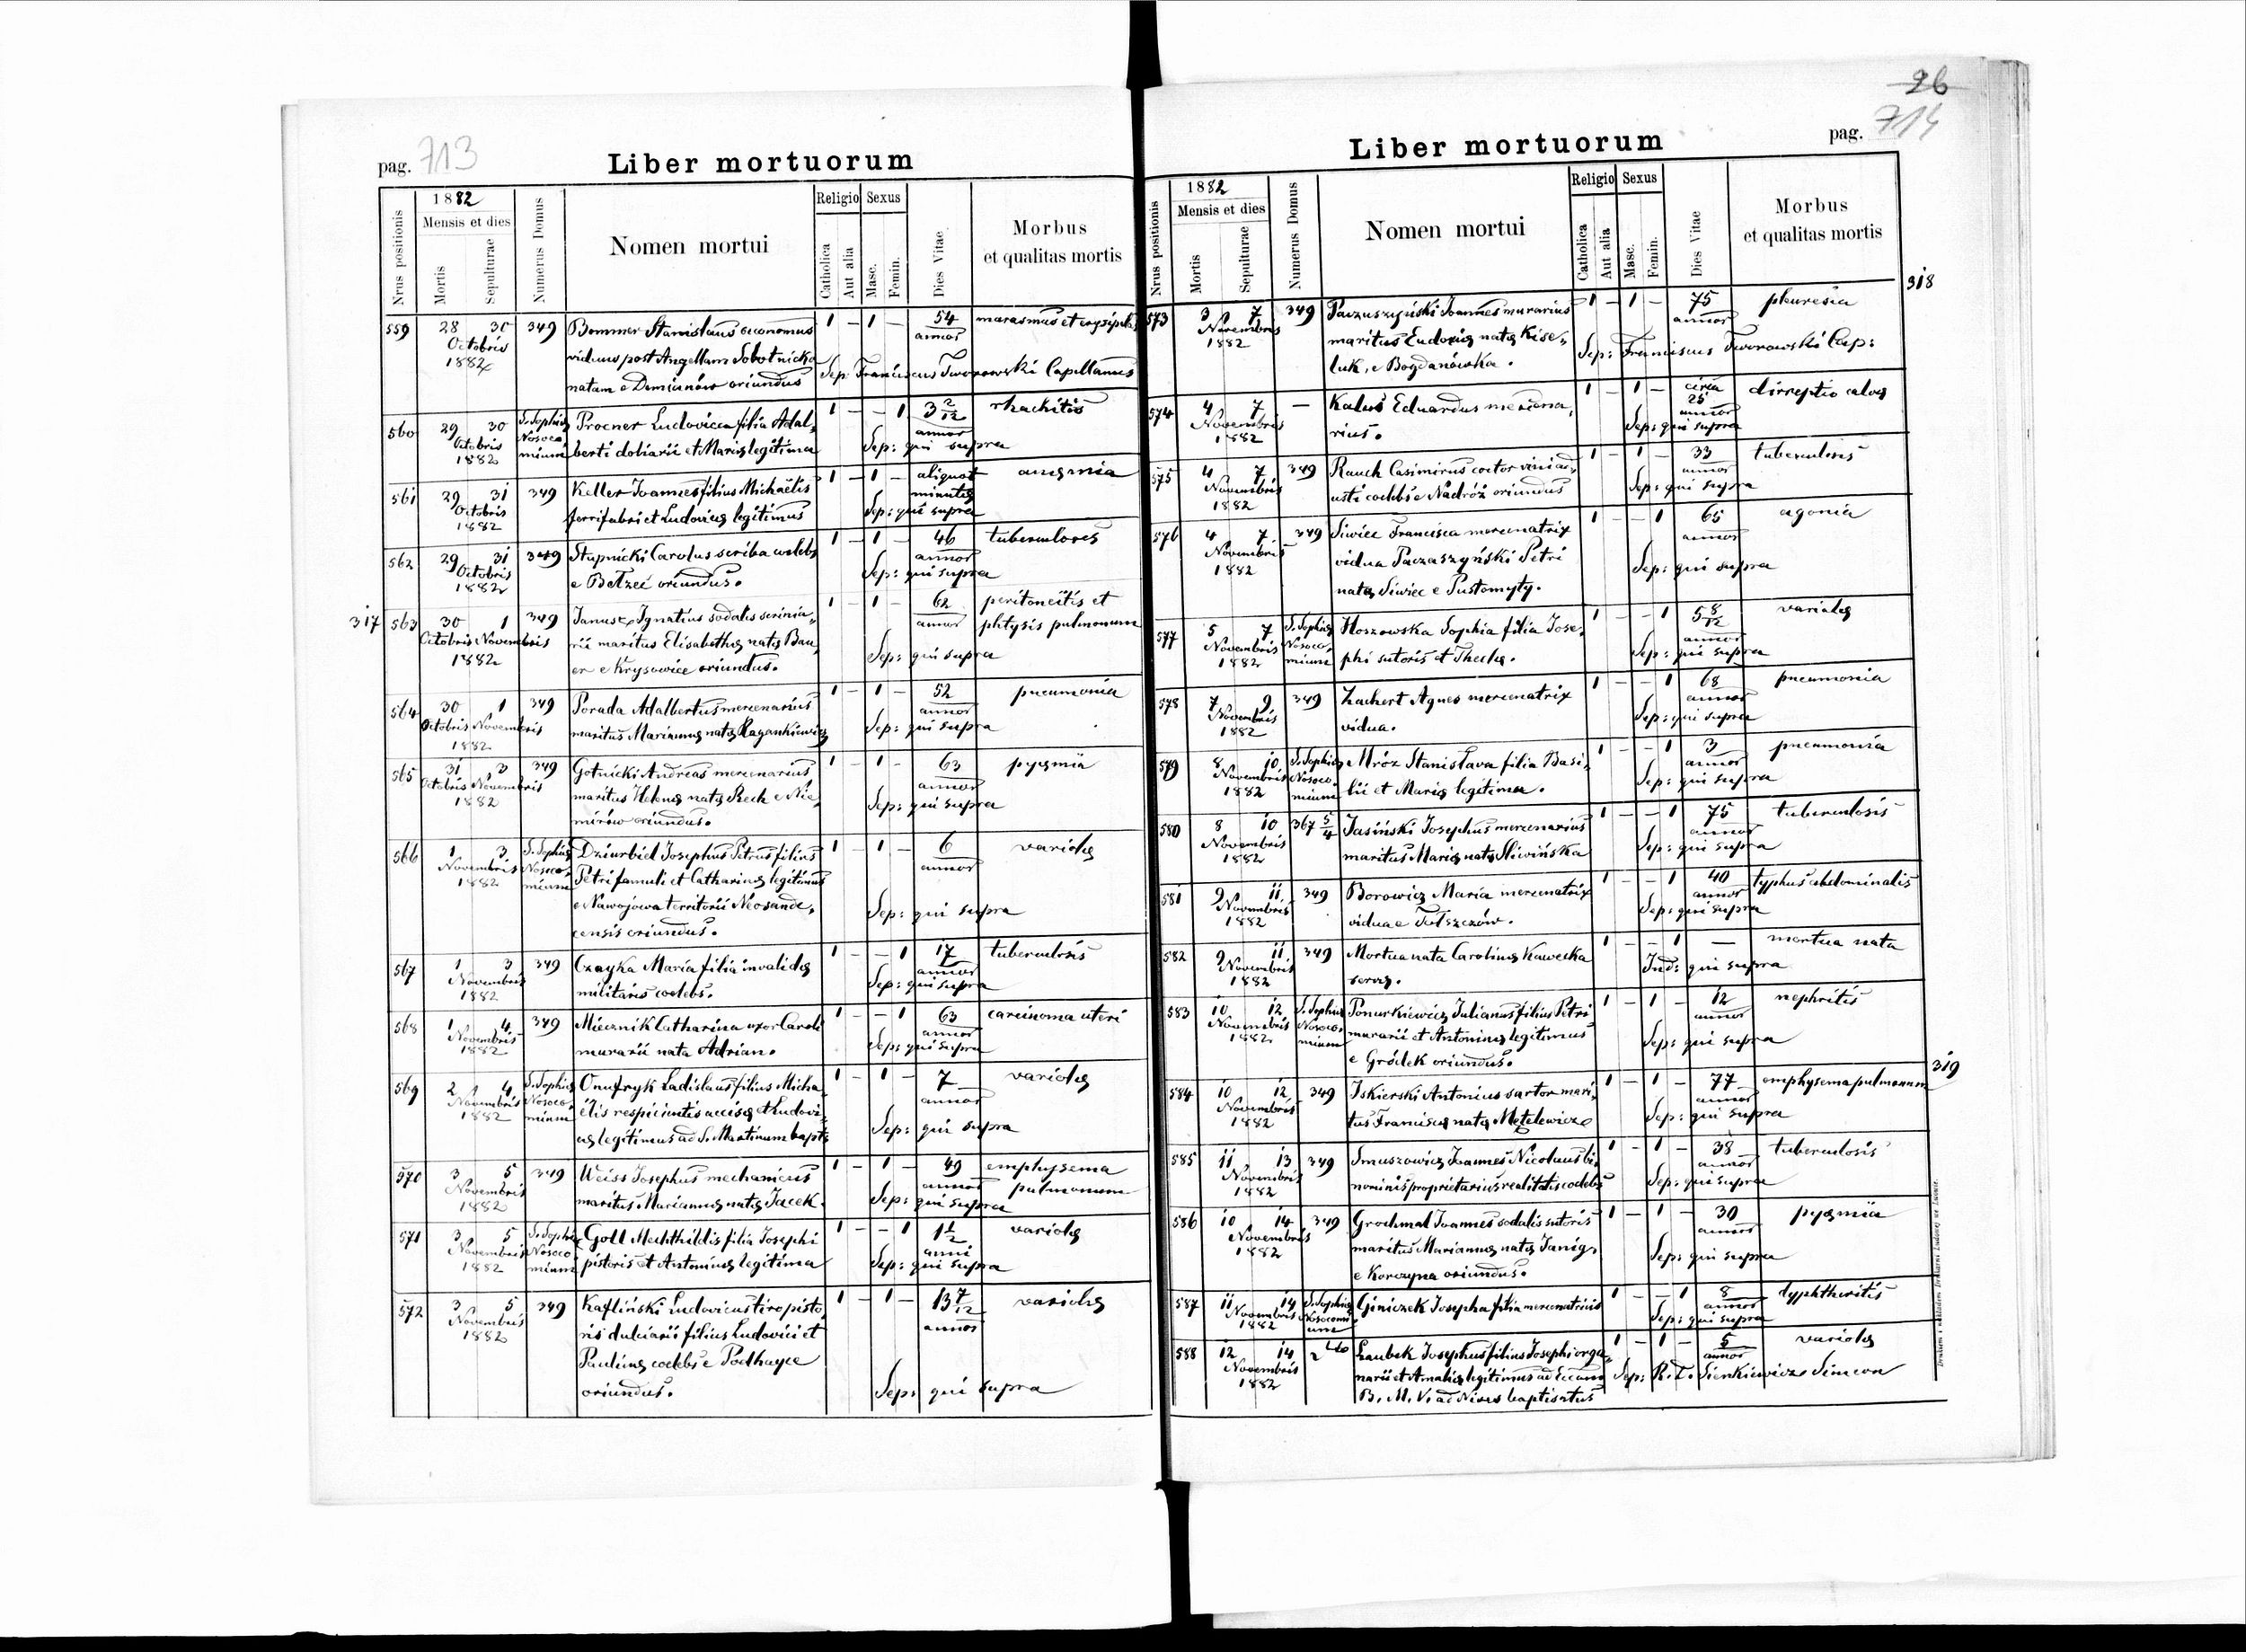 pag. 713
Liber mortuorum
Nrus positionis
1882
Mensis et dies
Mortis
Sepulturae
Numerus Domus
Nomen mortui
Religio
Catholica
Aut alia
Sexus
Masc.
Femin.
Dies Vitae
Morbus
et qualitas mortis
559 28 30 349 Bommer Stanislaus oeconomus 1 – 1 – 54 marasmus et erysipelas
Octobris viduus post Angellam Sobotnicka annor
1882 natam e Demianów oriundus Sep: Franciscus Tworowski Capellanus
560 29 30 S. Sophiæ Procner Ludovica filia Adal„ 1 – – 1 3 2/12 rhachitis
Octobris Nosoco„ berti doliarii et Mariæ legitima annor
1882 mium Sep: qui supra
561 29 31 349 Keller Joannes filius Michaëlis 1 – 1 – aliquot anæmia
Octobris ferrifabri et Ludovicæ legitimus minutis
1882 Sep: qui supra
562 29 31 349 Stupnicki Carolus scriba coelebs 1 – 1 – 46 tuberculoses
Octobris e Bełzec oriundus. annor
1882 Sep: qui supra
317 563 30 1 349 Janusz Ignatius sodalis scrinia„ 1 – 1 – 62 peritoneitis et
Octobris Novembris rii maritus Elisabethæ natæ Bau„ annor phtysis pulmonum
1882 er e Krysowice oriundus. Sep: qui supra
564 30 1 349 Porada Adalbertus mercenarius 1 – 1 – 52 pneumonia
Octobris Novembris maritus Mariannæ natæ Ragankiewicz annor
1882 Sep: qui supra
565 31 3 349 Gotnicki Andreas mercenarius 1 – 1 – 63 pyæmia
Octobris Novembris maritus Helenæ natæ Rech e Nie„ annor
1882 mirów oriundus. Sep: qui supra
566 1 3 S. Sophiæ Dziurbiel Josephus Petrus filius 1 – 1 – 6 variolæ
Novembris Nosoco„ Petri famuli et Catharinæ legitimus annor
1882 mium e Nawojowa territorii Neosande„ Sep: qui supra
censis oriundus.
567 1 3 349 Czayka Maria filia invalidæ 1 – – 1 17 tuberculosis
Novembris militaris coelebs. annor
1882 Sep: qui supra
568 1 4 349 Miecznik Catharina uxor Caroli 1 – – 1 63 carcinoma uteri
Novembris murarii nata Adrian. annor
1882 Sep: qui supra
569 2 4 S. Sophiæ Onufryk Ladislaus filius Micha„ 1 – 1 – 7 variolæ
Novembris Nosoco„ ëlis respicientis accisæ et Ludovi„ annor
1882 mium cæ legitimus ad S. Martinum bapt: Sep: qui supra
570 3 5 349 Weiss Josephus mechanicus 1 – 1 – 49 emphysema
Novembris maritus Mariannæ natæ Jacek. annor pulmonum
1882 Sep: qui supra
571 3 5 S. Sophiæ Goll Mechthildis filia Josephi 1 – – 1 1 1/2 variolæ
Novembris Nosoco„ pistoris et Antoniæ legitima anni
1882 mium Sep: qui supra
572 3 5 349 Kafliński Ludovicus tiro pisto„ 1 – 1 – 13 7/12 variolæ
Novembris ris dulciarii filius Ludovici et annor
1882 Paulinæ coelebs e Podhayce
oriundus. Sep: qui supra
26
pag. 714
Liber mortuorum
Nrus positionis
1882
Mensis et dies
Mortis
Sepulturae
Numerus Domus
Nomen mortui
Religio
Catholica
Aut alia
Sexus
Masc.
Femin.
Dies Vitae
Morbus
et qualitas mortis
318
573 3 7 349 Paczuszyński Joannes murarius 1 – 1 – 75 pleuresia
Novembris maritus Eudoxiæ natæ Kise„ annor
1882 luk, e Bogdanówka. Sep: Franciscus Tworowski Cap:
574 4 7 – Kaluś Eduardus mercena„ 1 – 1 – circa 25 dirreptio calvæ
Novembris rius. annor
1882 Sep: qui supra
575 4 7 349 Rauch Casimirus coctor vini ad„ 1 – 1 – 33 tuberculosis
Novembris usti coelebs e Nadróż oriundus annor
1882 Sep: qui supra
576 4 7 349 Siwiec Francisca mercenatrix 1 – – 1 65 agonia
Novembris vidua Paczaszyński Petri annor
1882 natæ Siwiec e Pustomyty. Sep: qui supra
577 5 7 S. Sophiæ Hoszowska Sophia filia Jose„ 1 – – 1 5 8/12 variolæ
Novembris Nosoco„ phi sutoris et Theclæ. annor
1882 mium Sep: qui supra
578 7 9 349 Zachert Agnes mercenatrix 1 – – 1 68 pneumonia
Novembris vidua. annor
1882 Sep: qui supra
579 8 10 S. Sophiæ Mróz Stanislava filia Basi„ 1 – – 1 3 pneumonia
Novembris Nosoco„ lii et Mariæ legitima. annor
1882 mium Sep: qui supra
580 8 10 367 5/4 Jasiński Josephus mercenarius 1 – – 1 75 tuberculosis
Novembris maritus Mariæ natæ Śliwińska annor
1882 Sep: qui supra
581 9 11 349 Borowicz Maria mercenatrix 1 – – 1 40 typhus abdominalis
Novembris vidua e Tołszczów. annor
1882 Sep: qui supra
582 9 11 349 Mortua nata Carolinæ Kawecka 1 – – 1 – mortua nata
Novembris servæ. Ind: qui supra
1882
583 10 12 S. Sophiæ Ponurkiewicz Julianus filius Petri 1 – 1 – 12 nephritis
Novembris Nosoco„ murarii et Antoninæ legitimus annor
1882 mium e Gródek oriundus. Sep: qui supra
319
584 10 12 349 Iskierski Antonius sartor mari„ 1 – 1 – 77 emphysema pulmonum
Novembris tus Franciscæ natæ Metelewicz annor
1882 Sep: qui supra
585 11 13 349 Smuszowicz Joannes Nicolaus bi„ 1 – 1 – 38 tuberculosis
Novembris nominis proprietarius realitatis coelebs annor
1882 Sep: qui supra
586 10 14 349 Grochmal Joannes sodalis sutoris 1 – 1 – 30 pyæmia
Novembris maritus Mariannæ natæ Janig, annor
1882 e Korczyna oriundus. Sep: qui supra
587 11 14 S. Sophiæ Giniczek Josepha filia mercenatricis 1 – – 1 8 dyphtheritis
Novembris Nosocomi„ annor
1882 um Sep: qui supra
588 12 14 Łaubek Josephus filius Josephi orga„ 1 – 1 – 5 variolæ
Novembris narii et Amaliæ legitimus ad Eccam annor
1882 B. M. V. ad Nives baptisatus Sep: R. D. Sienkiewicz Simeon
Drukiem i nakładem Drukarni Ludowej we Lwowie.